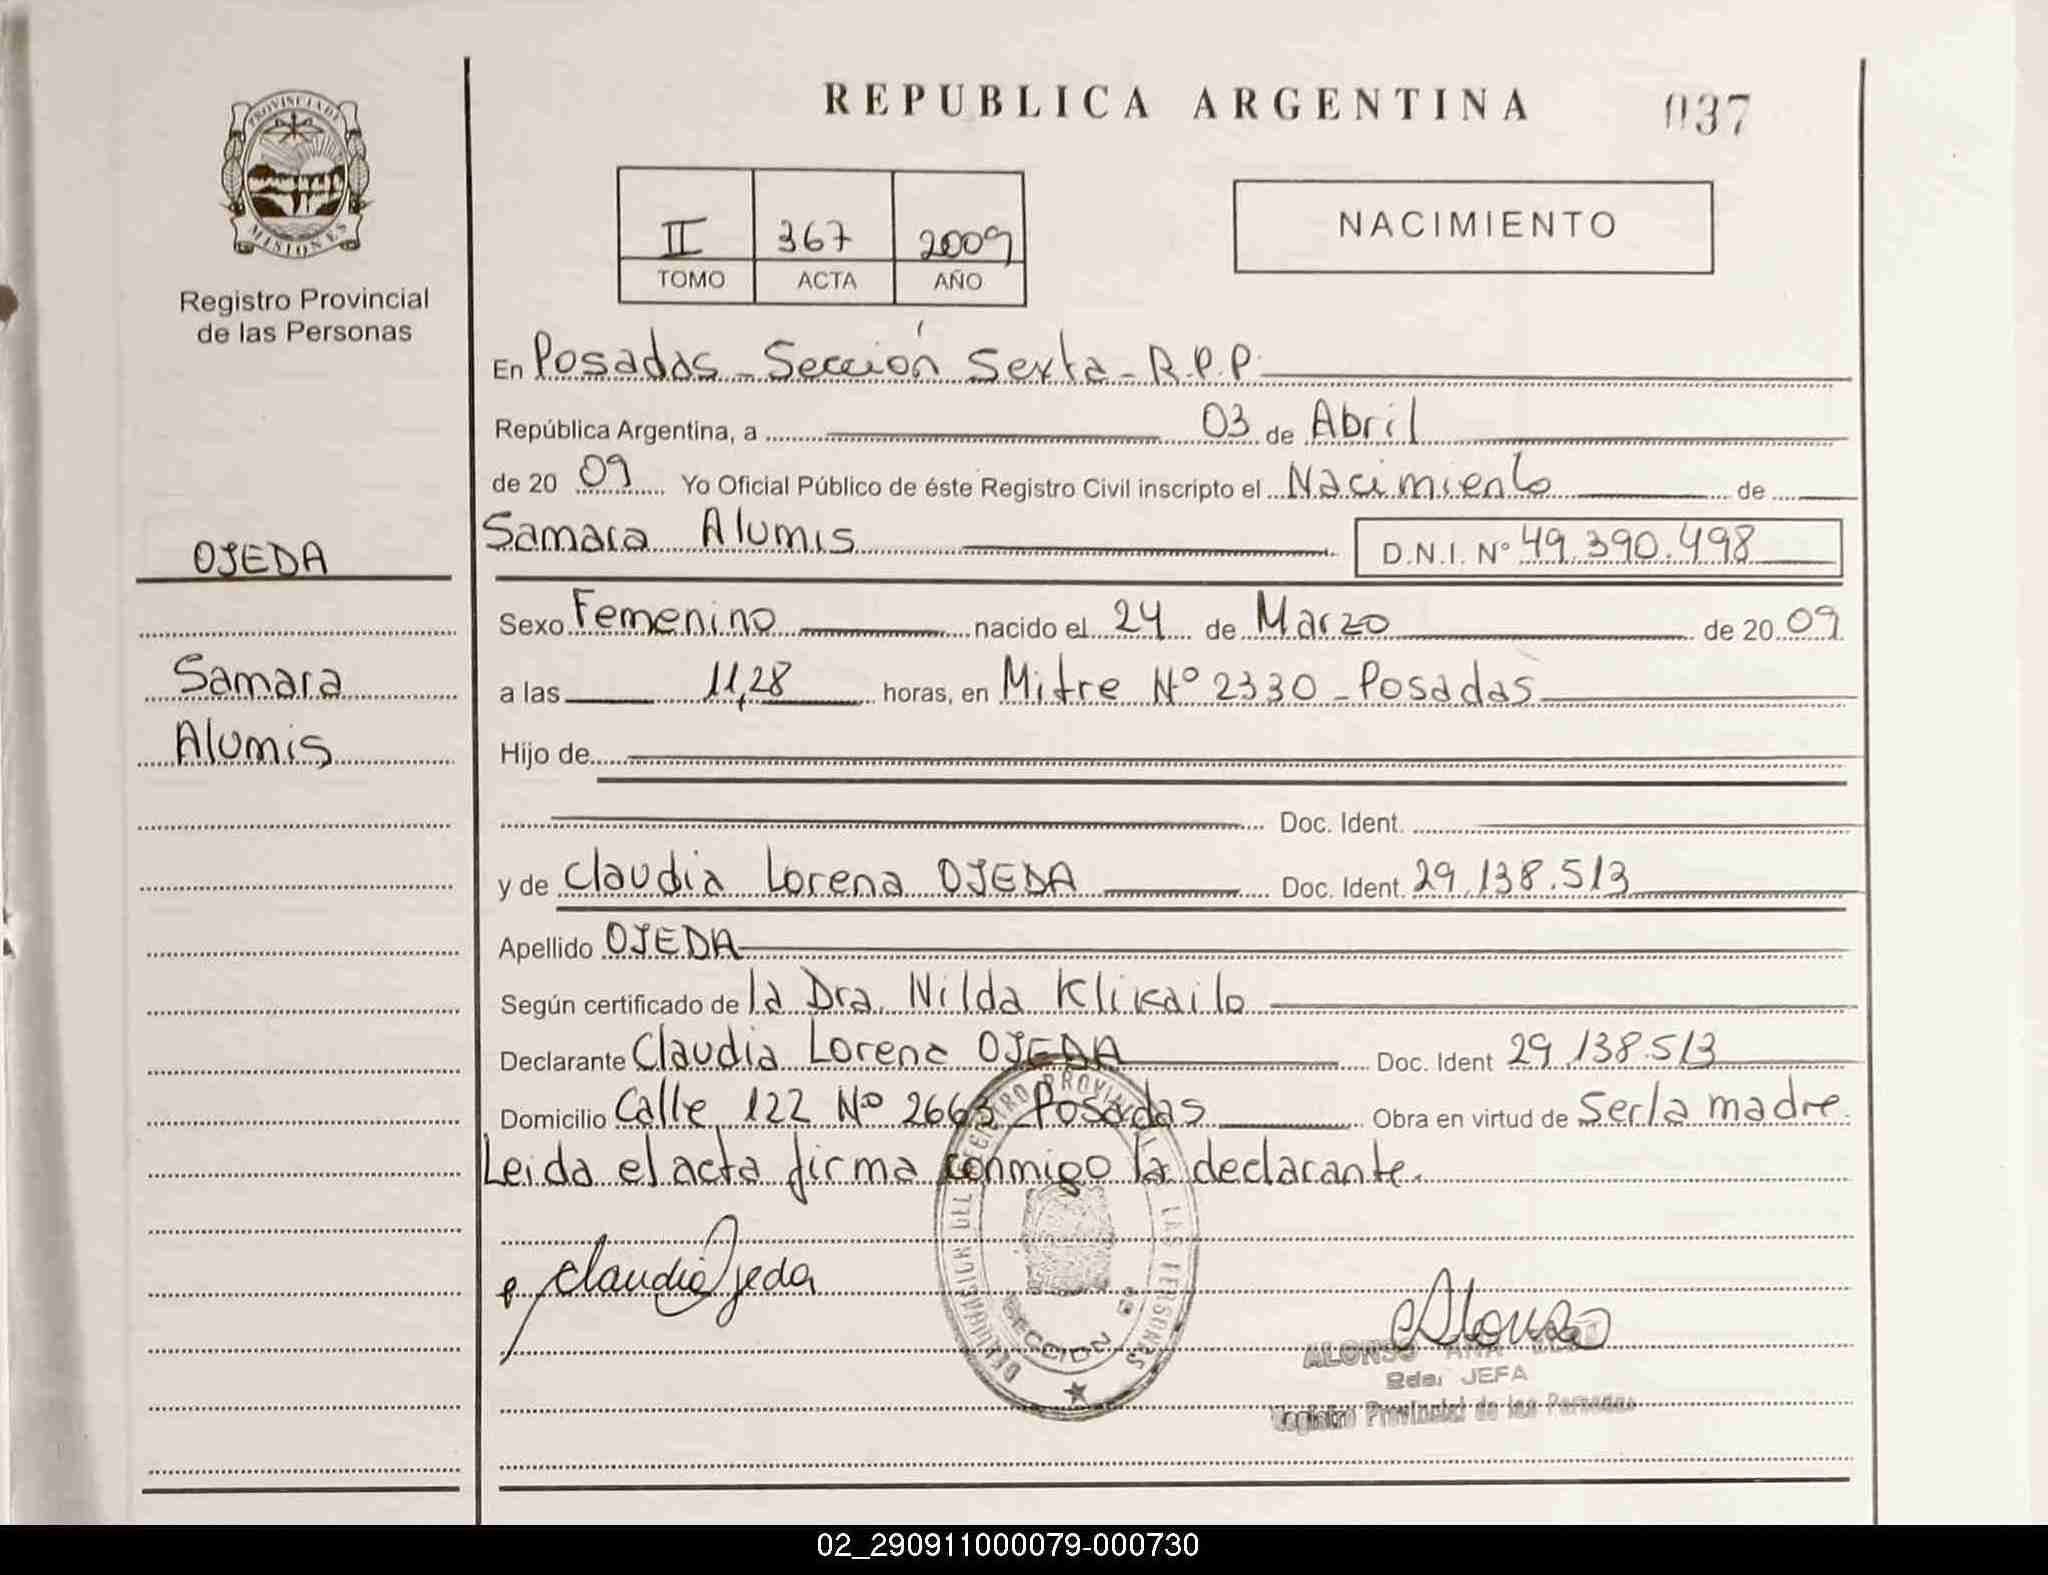 PROVINCIA DE
MISIONES
Registro Provincial
de las Personas
OJEDA
Samara
Alumis
REPUBLICA ARGENTINA
037
II 367 2009
TOMO ACTA AÑO
NACIMIENTO
En Posadas - Sección Sexta - R.P.P.
República Argentina, a 03 de Abril
de 20 09 Yo Oficial Público de éste Registro Civil inscripto el Nacimiento de
Samara Alumis D.N.I. Nº 49.390.498
Sexo Femenino nacido el 24 de Marzo de 20 09
a las 11,28 horas, en Mitre Nº 2330 - Posadas
Hijo de
Doc. Ident.
y de Claudia Lorena OJEDA Doc. Ident. 29.138.513
Apellido OJEDA
Según certificado de la Dra. Nilda Klikailo
Declarante Claudia Lorena OJEDA Doc. Ident 29.138.513
Domicilio Calle 122 Nº 2663 Posadas Obra en virtud de Ser la madre.
Leida el acta firma conmigo la declarante.
Claudia Ojeda
DELEGACION DEL REGISTRO PROVINCIAL DE LAS PERSONAS
SECCION 6ª
Alonso
ALONSO ANA
Sda. JEFA
Registro Provincial de las Personas
02_290911000079-000730